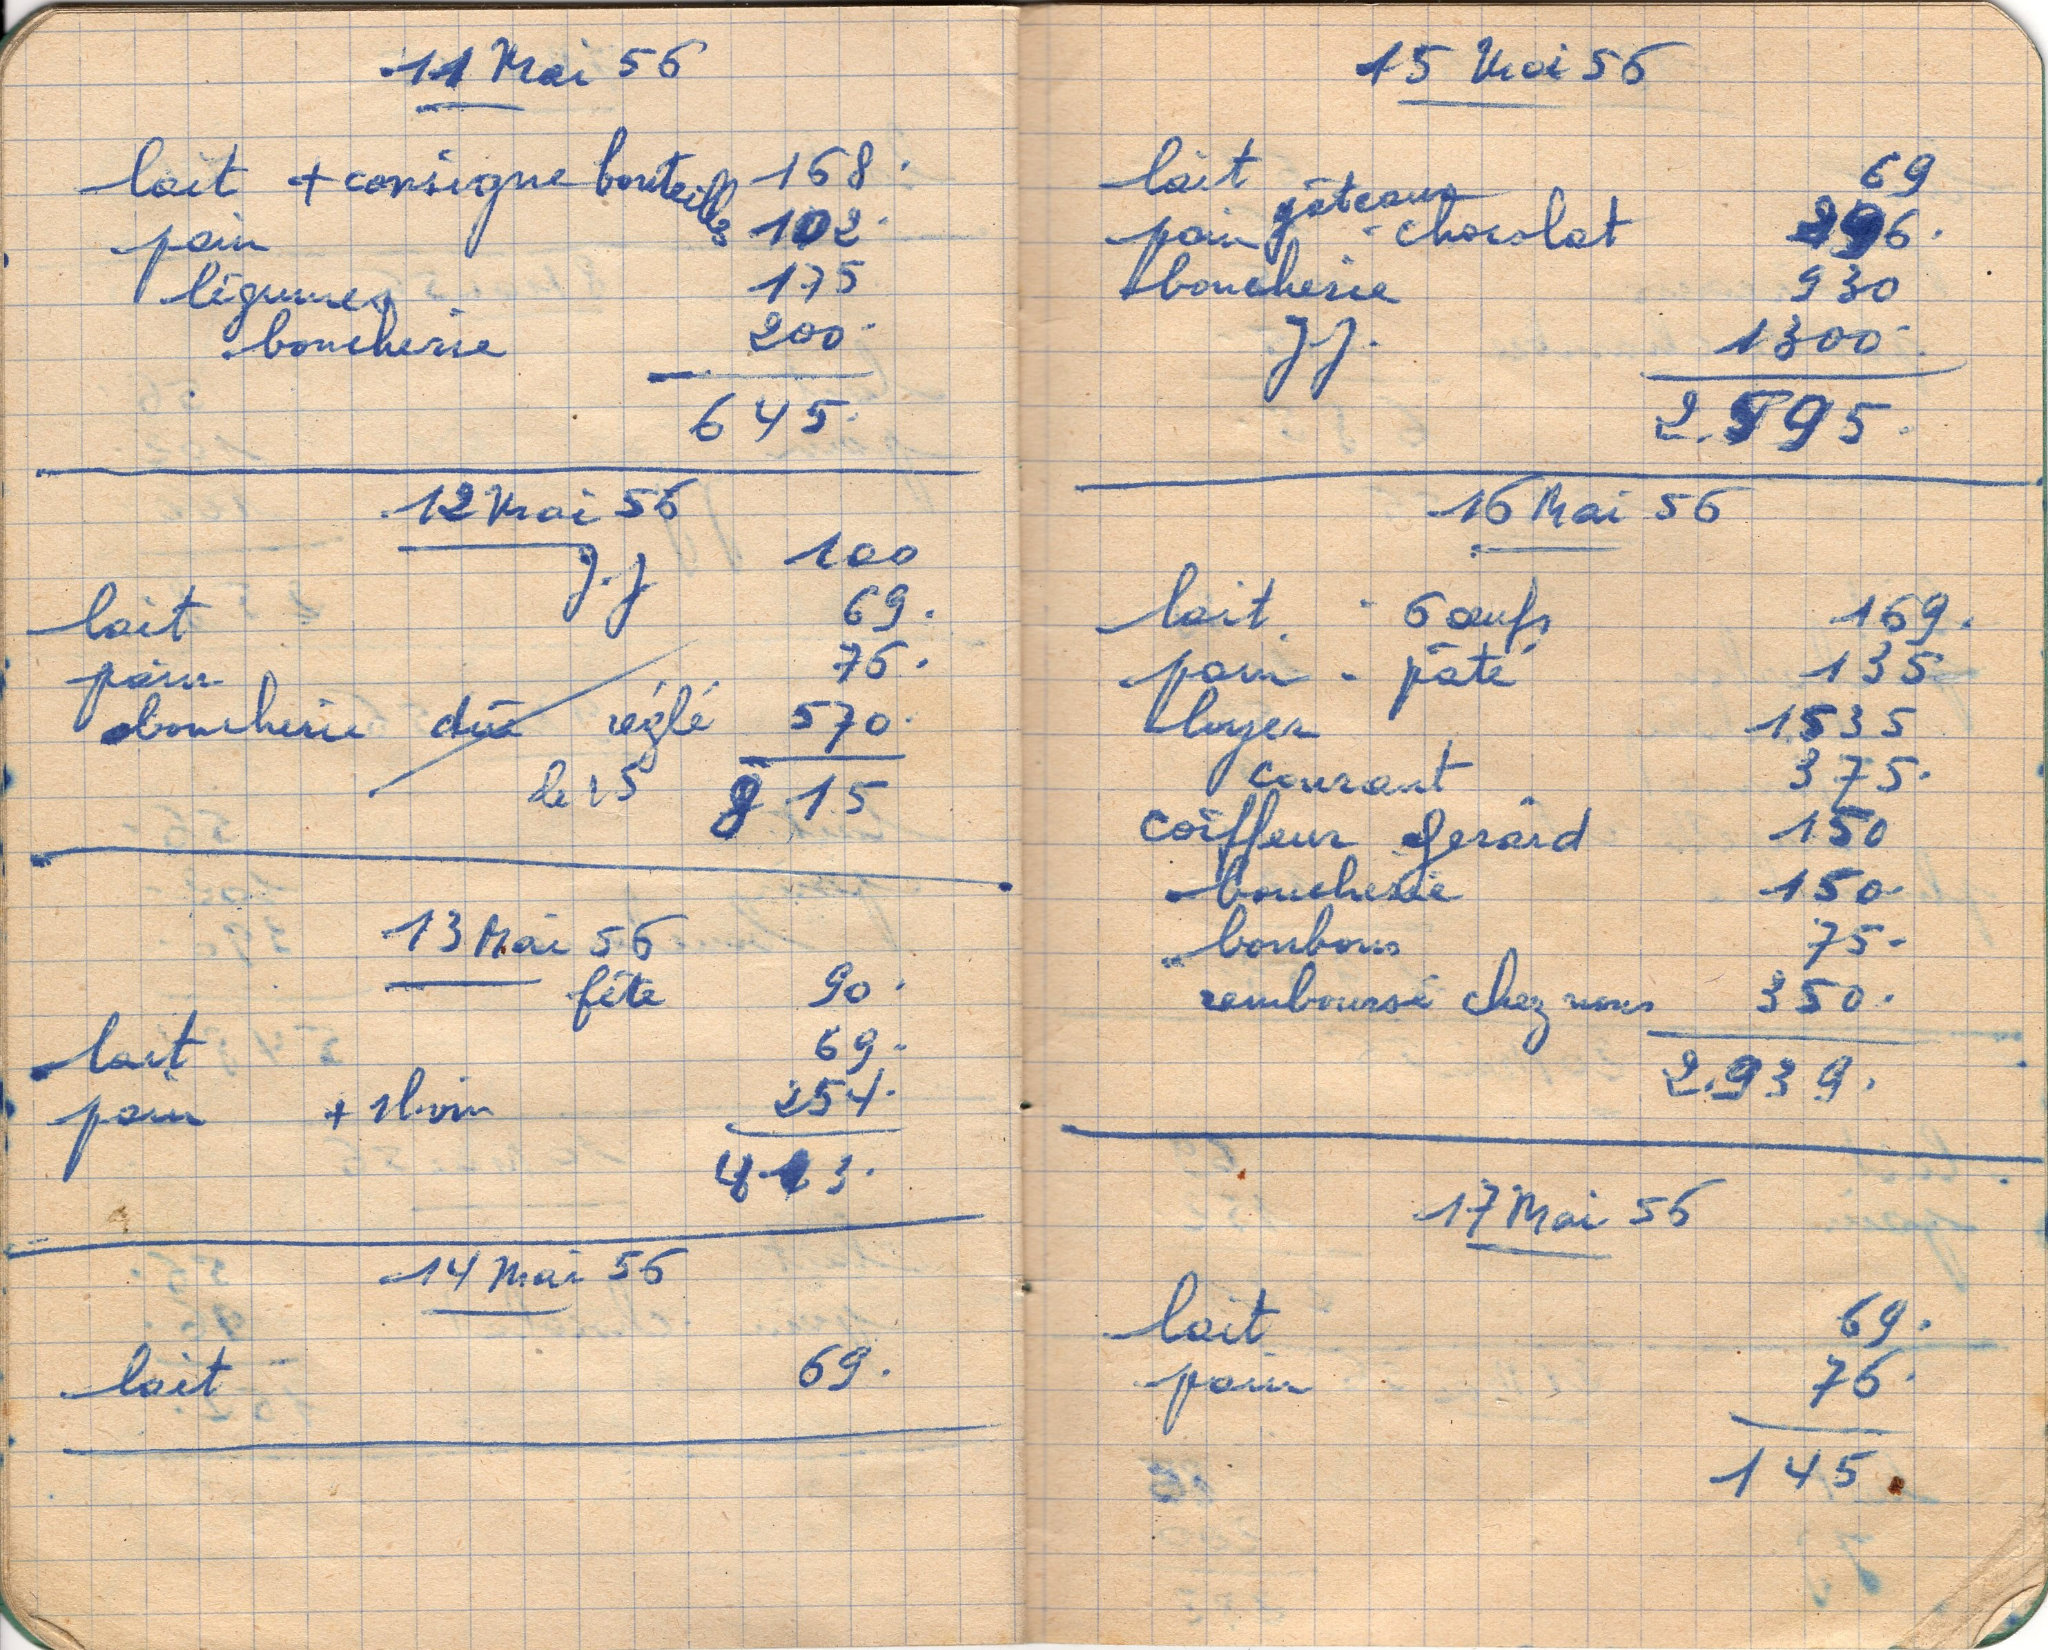 11 Mai 56
lait + consigne bouteilles 168.
pain 102.
légumes 175
boucherie 200.
645.
12 Mai 56
J.J 100
lait 69.
pain 76.
boucherie dûe réglé 570.
le 15 815
13 Mai 56
fête 90.
lait 69.
pain + 1l. vin 254.
413.
14 Mai 56
lait 69.
15 Mai 56
lait 69
pain gâteaux - chocolat 296.
boucherie 930
J.J. 1300.
2.595.
16 Mai 56
lait - 6 œufs 169.
pain - pâté 135
loyer 1535
courant 375.
coiffeur Gérard 150
boucherie 150.
bonbons 75.
remboursé chez nous 350.
2.939.
17 Mai 56
lait 69.
pain 76.
145.